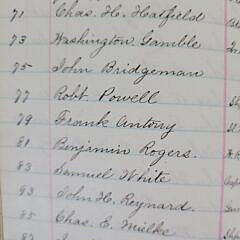 71 Chas. H. Hatfield
73 Washington Gamble
75 John Bridgeman
77 Robt. Powell
79 Frank Antony
81 Benjamin Rogers.
83 Samuel White
93 John H. Reynard.
85 Chas. E. Milke
87